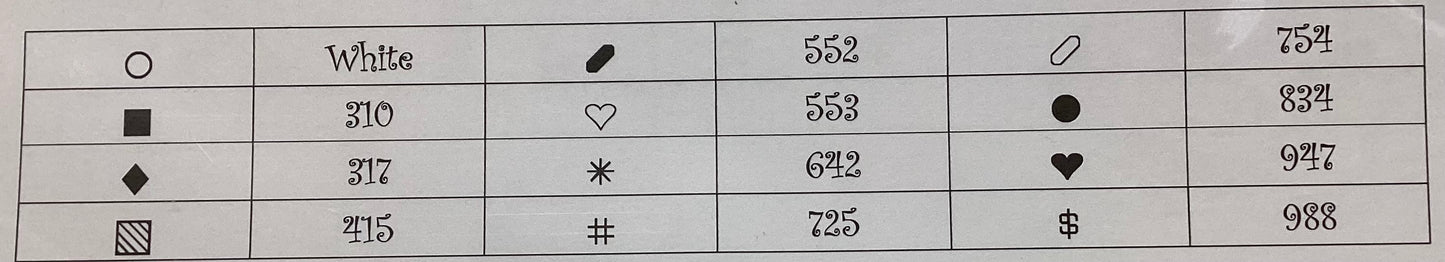 ○ White ⬮ 552 ⬯ 754
■ 310 ♡ 553 ● 834
◆ 317 * 642 ♥ 947
▧ 415 # 725 $ 988